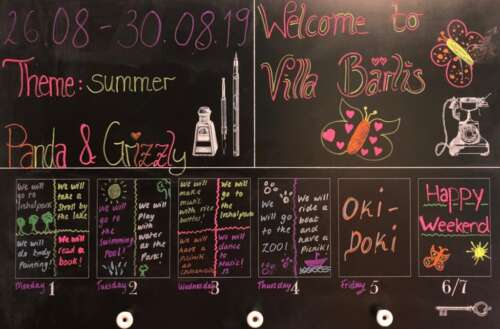 26.08 - 30.08.19
Theme: summer
Panda & Grizzly
Welcome to
Villa Bärlis
We will
go to
We will
take a
Stroll by
the lake
We will
do body
Painting!
We will
read a
book!
Monday 1
We will
go to
the
Swimming
Pool!
We will
Play
with
water
at the
Park!
Tuesday 2
We will
make
music
with rice
We will
go to
the
We will
have a
Picnik
at
We will
dance
to
Music!
Wednesday 3
We
will
go to
the
ZOO!
We will
ride a
boat
and
have a
Picnik!
Thursday 4
Oki-
Doki
Friday 5
Happy
Weekend
6/7